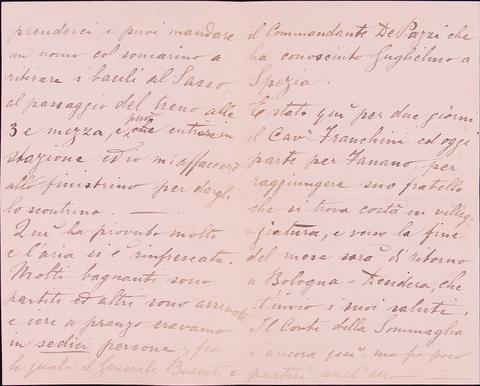 prenderci e puoi mandare
un uomo col somarino a
ritirare i bauli al Sasso,
al passaggio del treno alle
3 e mezza, e può che entrare in
stazione ed io m'affaccerò
allo finestrino per dargli
lo scontrino. —
Qui ha piovuto molto
e l'aria si è rinfrescata.
Molti bagnanti sono
partiti ed altri sono arrivati
e ieri a pranzo eravamo
in sedici persone, fra
le quali il Generale e
il Commandante De Pazzi che
ha conosciuto Guglielmo a
Spezia.
È stato qui per due giorni
il Cav.r Franchini ed oggi
parte per Fanano, per
raggiungere suo fratello
che si trova costà in villeg-
giatura, e verso la fine
del mese sarà di ritorno
a Bologna - Desidera, che
t'invio i suoi saluti.
Il Conte della Sommaglia
è ancora qui, ma fra poco
partirà anch'esso